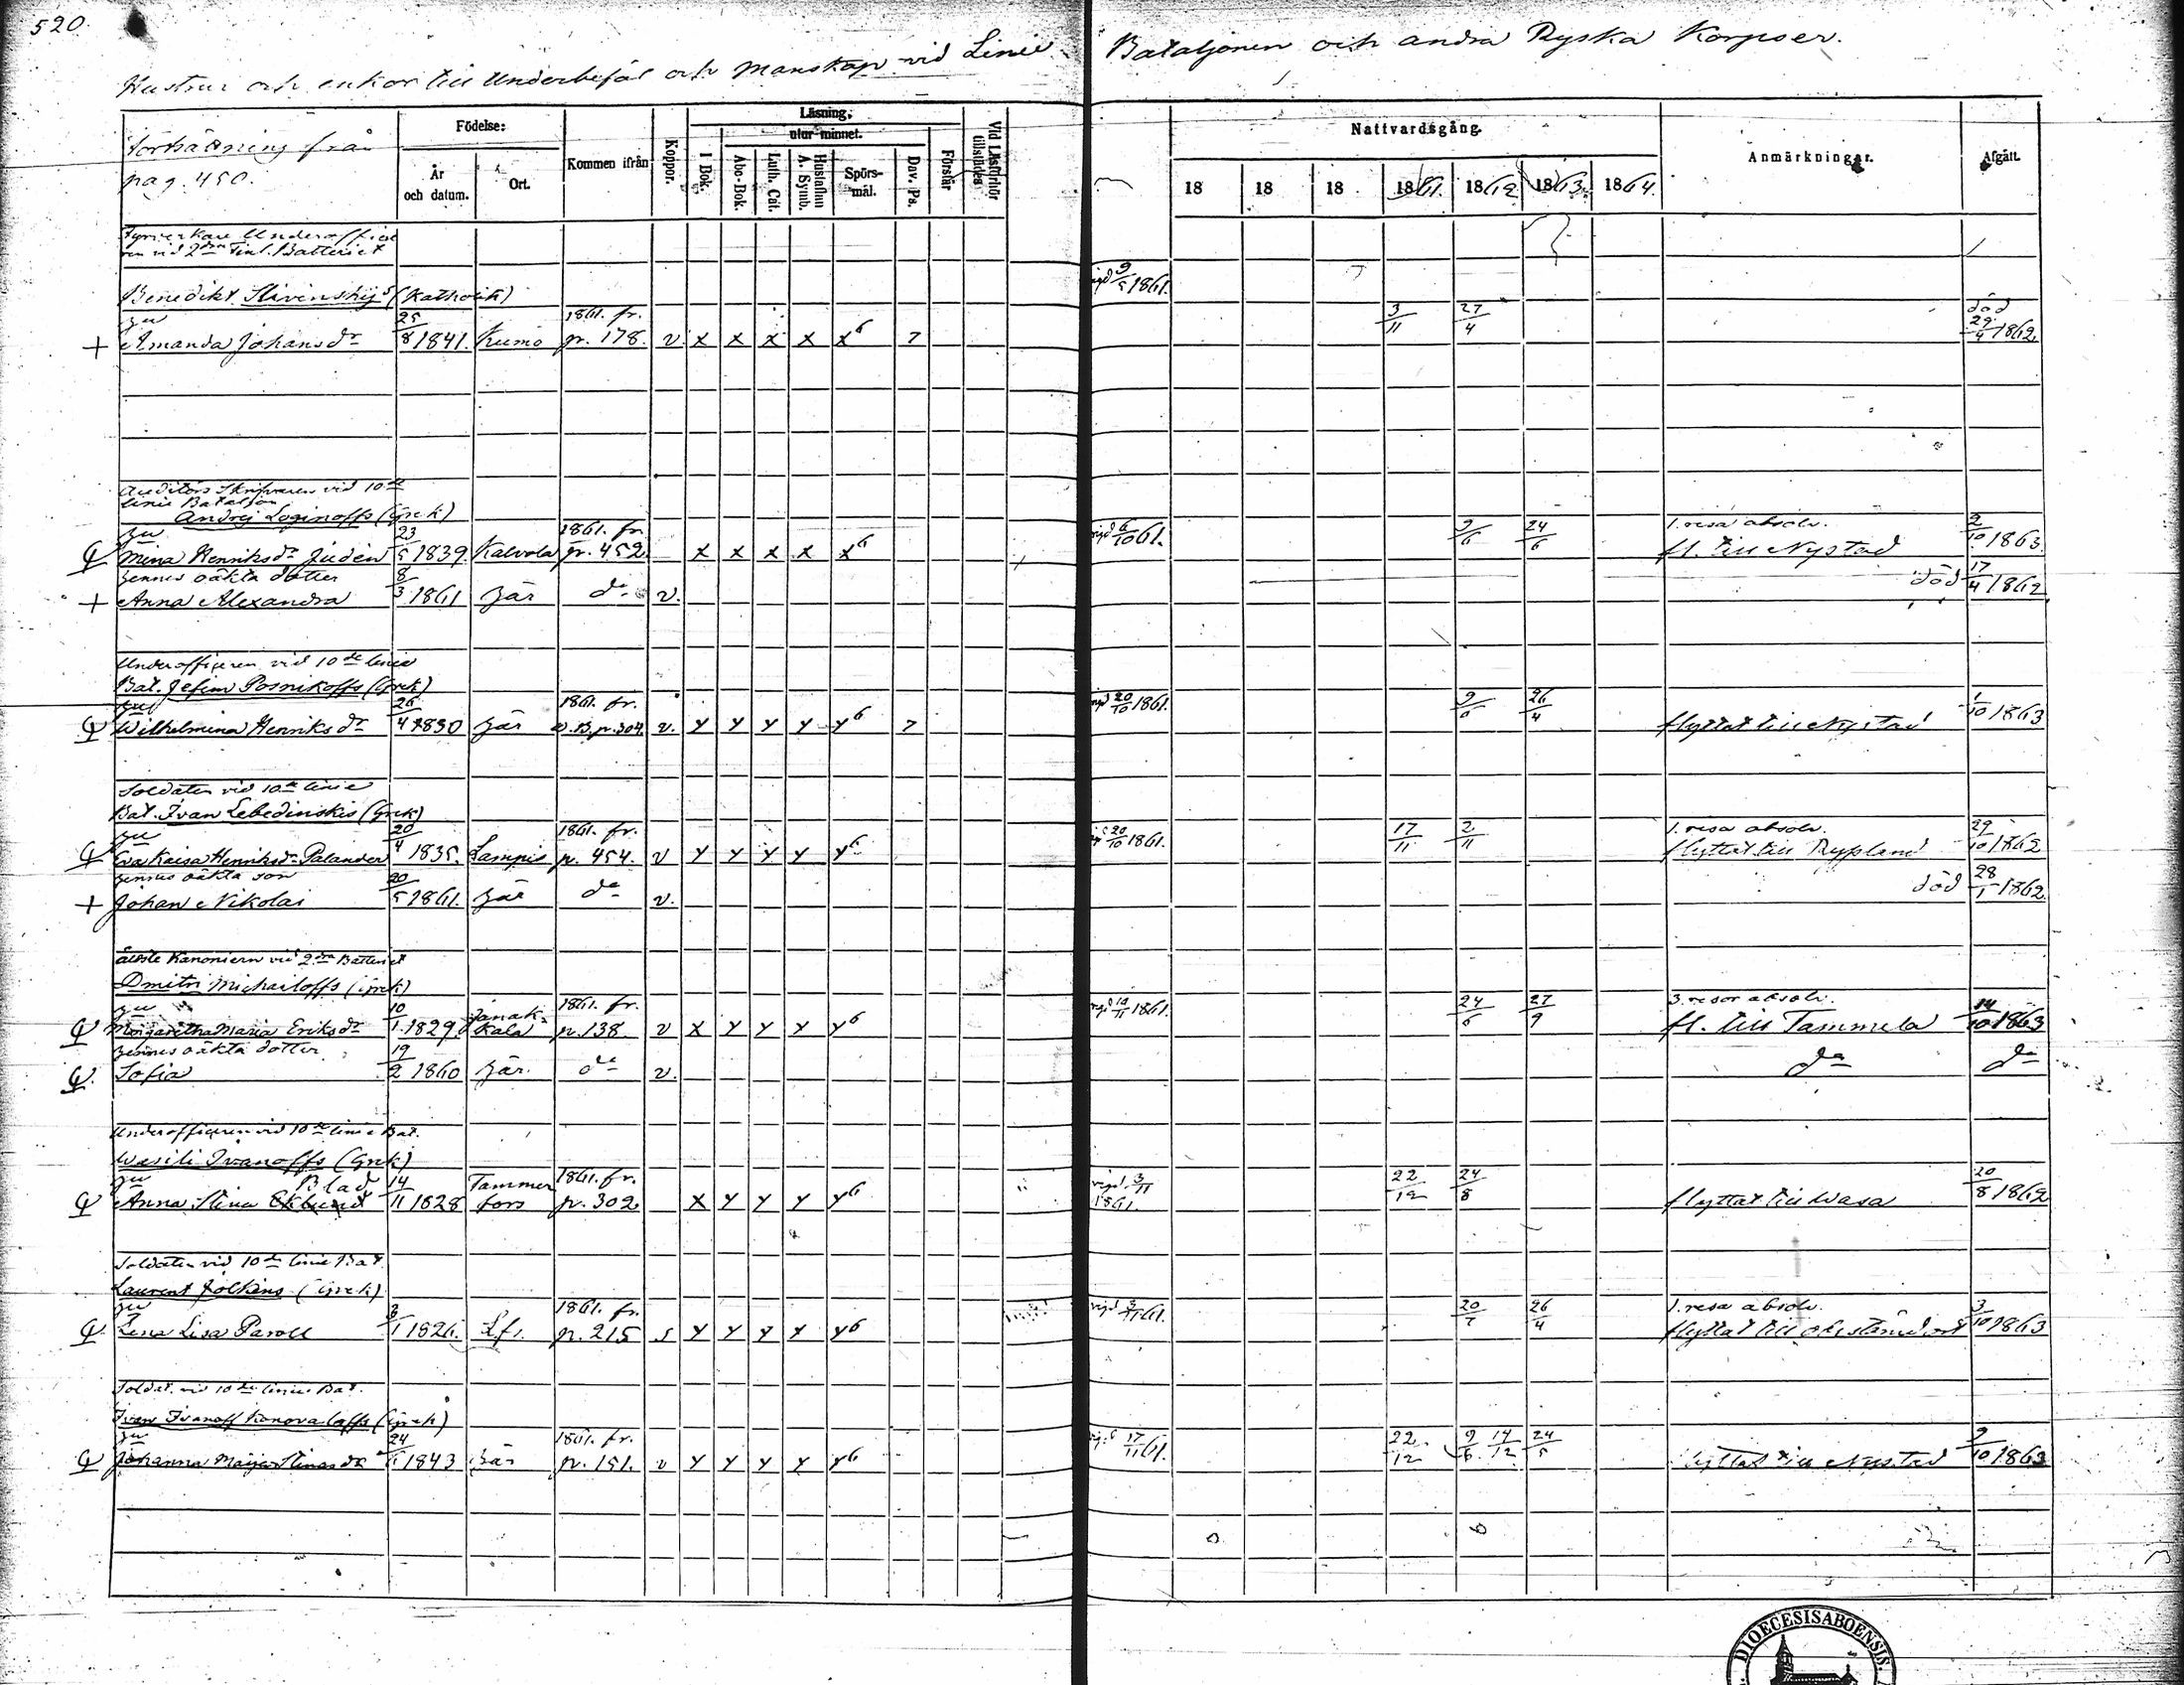 520.
Hustrur och enkor till Underbefäl och Manskap vid Linie Bataljonen och andra Ryska Korpser.
Fortsättning från
pag. 450.
Födelse:
År och datum.
Ort.
Kommen ifrån
Koppor.
Läsning,
utur minnet.
I Bok.
Abc-Bok.
Luth. Cat.
Hustaflan A. Symb.
Spörsmål.
Dav. Ps.
Förstår
Vid Läsförhör tillstädes
Nattvardsgång.
18 18 18 1861. 1862 1863. 1864.
Anmärkningar.
Afgått.
Fyrverkare Underoffice
ren vid 2dra Finl. Batteriet
Benedikt (Katholik) vigd 9/5 1861.
hu 25 1861. fr. 3/11 27/4 död
+ Amanda Johansdr 8 1841. Kumo p. 178. v. x x x x x6 7 29/4 1862
Auditörs Skrifvaren vid 10de
Linie Bataljon
Andrej Loginoffs (Grek) vigd 6/10 61.
hu 23 1861. fr. 9/6 24/6 1. resa absolv. 2
Mina Henriksdr Juden 5 1839. Kalvola p. 452 x x x x x6 fl. till Nystad 10 1863.
hennes oäkta dotter 8 död 17
+ Anna Alexandra 3 1861 här do v. 4 1862
Underofficeren vid 10de linie
Bat. Jefim Posnikoffs (Grek) vigd 20/10 1861.
hu 26 1861. fr. 9/6 26/4 1
Wilhelmina Henriksdr 4 1830 här p. 304 v. y y y y y6 7 flyttat till Nystad 10 1863
Soldaten vid 10de linie
Bat. Ivan Lebedinskis (Grek) 20/10 1861.
hu 20 1861. fr. 17/11 2/11 1. resa absolv. 29
Eva Kaisa Henriksdr Palander 4 1835. Lampis p. 454. v y y y y y6 flyttat till Ryssland 10 1862
hennes oäkta son 20 död 28
+ Johan Nikolai 5 1861. här do v. 1 1862.
äldste Kanoniern vid 2dra Batteriet
Dmitri Michailoffs (Grek) vigd 1861.
hu 10 Janak- 1861. fr. 24/6 27/9 3. resor absolv. 14
Margaretha Maria Eriksdr 1 1829. kala p. 138. v x y y y y6 fl. till Tammela 10 1863
hennes oäkta dotter 19
Sofia 2 1860 här. do v. do do
Underofficeren vid 10de linie Bat.
Wasili Ivanoffs (Grek)
hu Blad 14 Tammer 1861. fr. vigd 3/11 1861. 22/12 24/8 20
Anna Stina Eklund 11 1828 fors p. 302 x y y y y6 flyttat till Wasa 8 1862
Soldaten vid 10de linie Bat.
Laurent (Grek)
hu 3 1861. fr. vigd 61. 20/7 26/4 1. resa absolv. 3
Lena Lisa Paroll 1 1826. p. 215 s y y y y y6 flyttat till 10 1863
Soldat. vid 10de linie Bat.
Ivan Ivanoff Konovaloffs (Grek)
hu 24 1861. fr. 17/11 61. 22/12 9/6 14/12 24/5 2
Johanna Maija Stinasdr 1843 här p. 151. v y y y y y6 flyttat till Nystad 10 1863
DIOECESIS ABOENSIS.